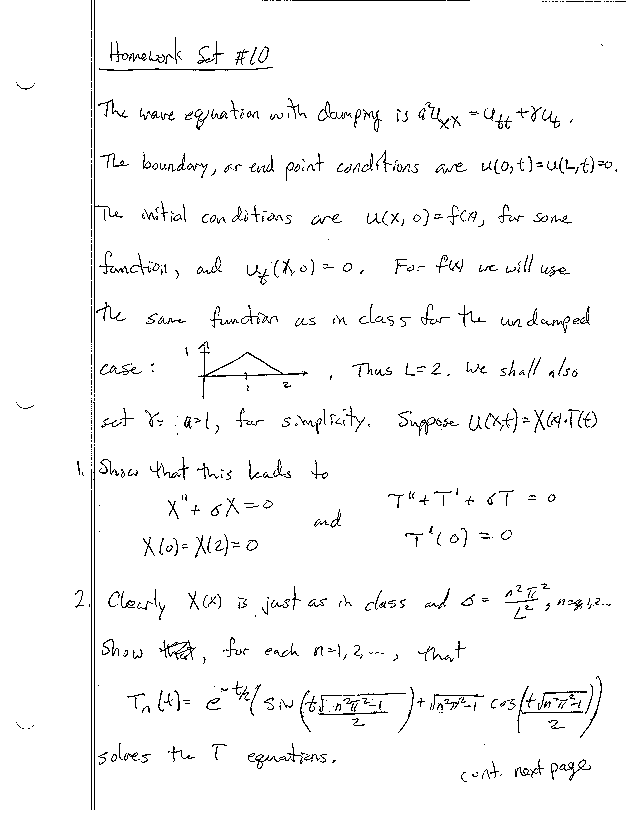 Homework Set #10
The wave equation with damping is a²u_xx = u_tt + γu_t.
The boundary, or end point conditions are u(0,t)=u(L,t)=0.
The initial conditions are u(x,0)=f(x), for some
function, and u_t(x,0) = 0. For f(x) we will use
the same function as in class for the undamped
case: 1 1 2 , Thus L=2. We shall also
set γ= a=1, for simplicity. Suppose u(x,t)=X(x)·T(t)
1. Show that this leads to
X''+ σX=0 and T''+T'+ σT = 0
X(0)=X(2)=0 T'(0) = 0
2. Clearly X(x) is just as in class and σ = n²π²/L², n=0,1,2...
Show, for each n=1,2,..., that
T_n(t)= e^(-t/2)(sin(t√(n²π²-1)/2)+√(n²π²-1) cos(t√(n²π²-1)/2))
solves the T equations.
cont. next page